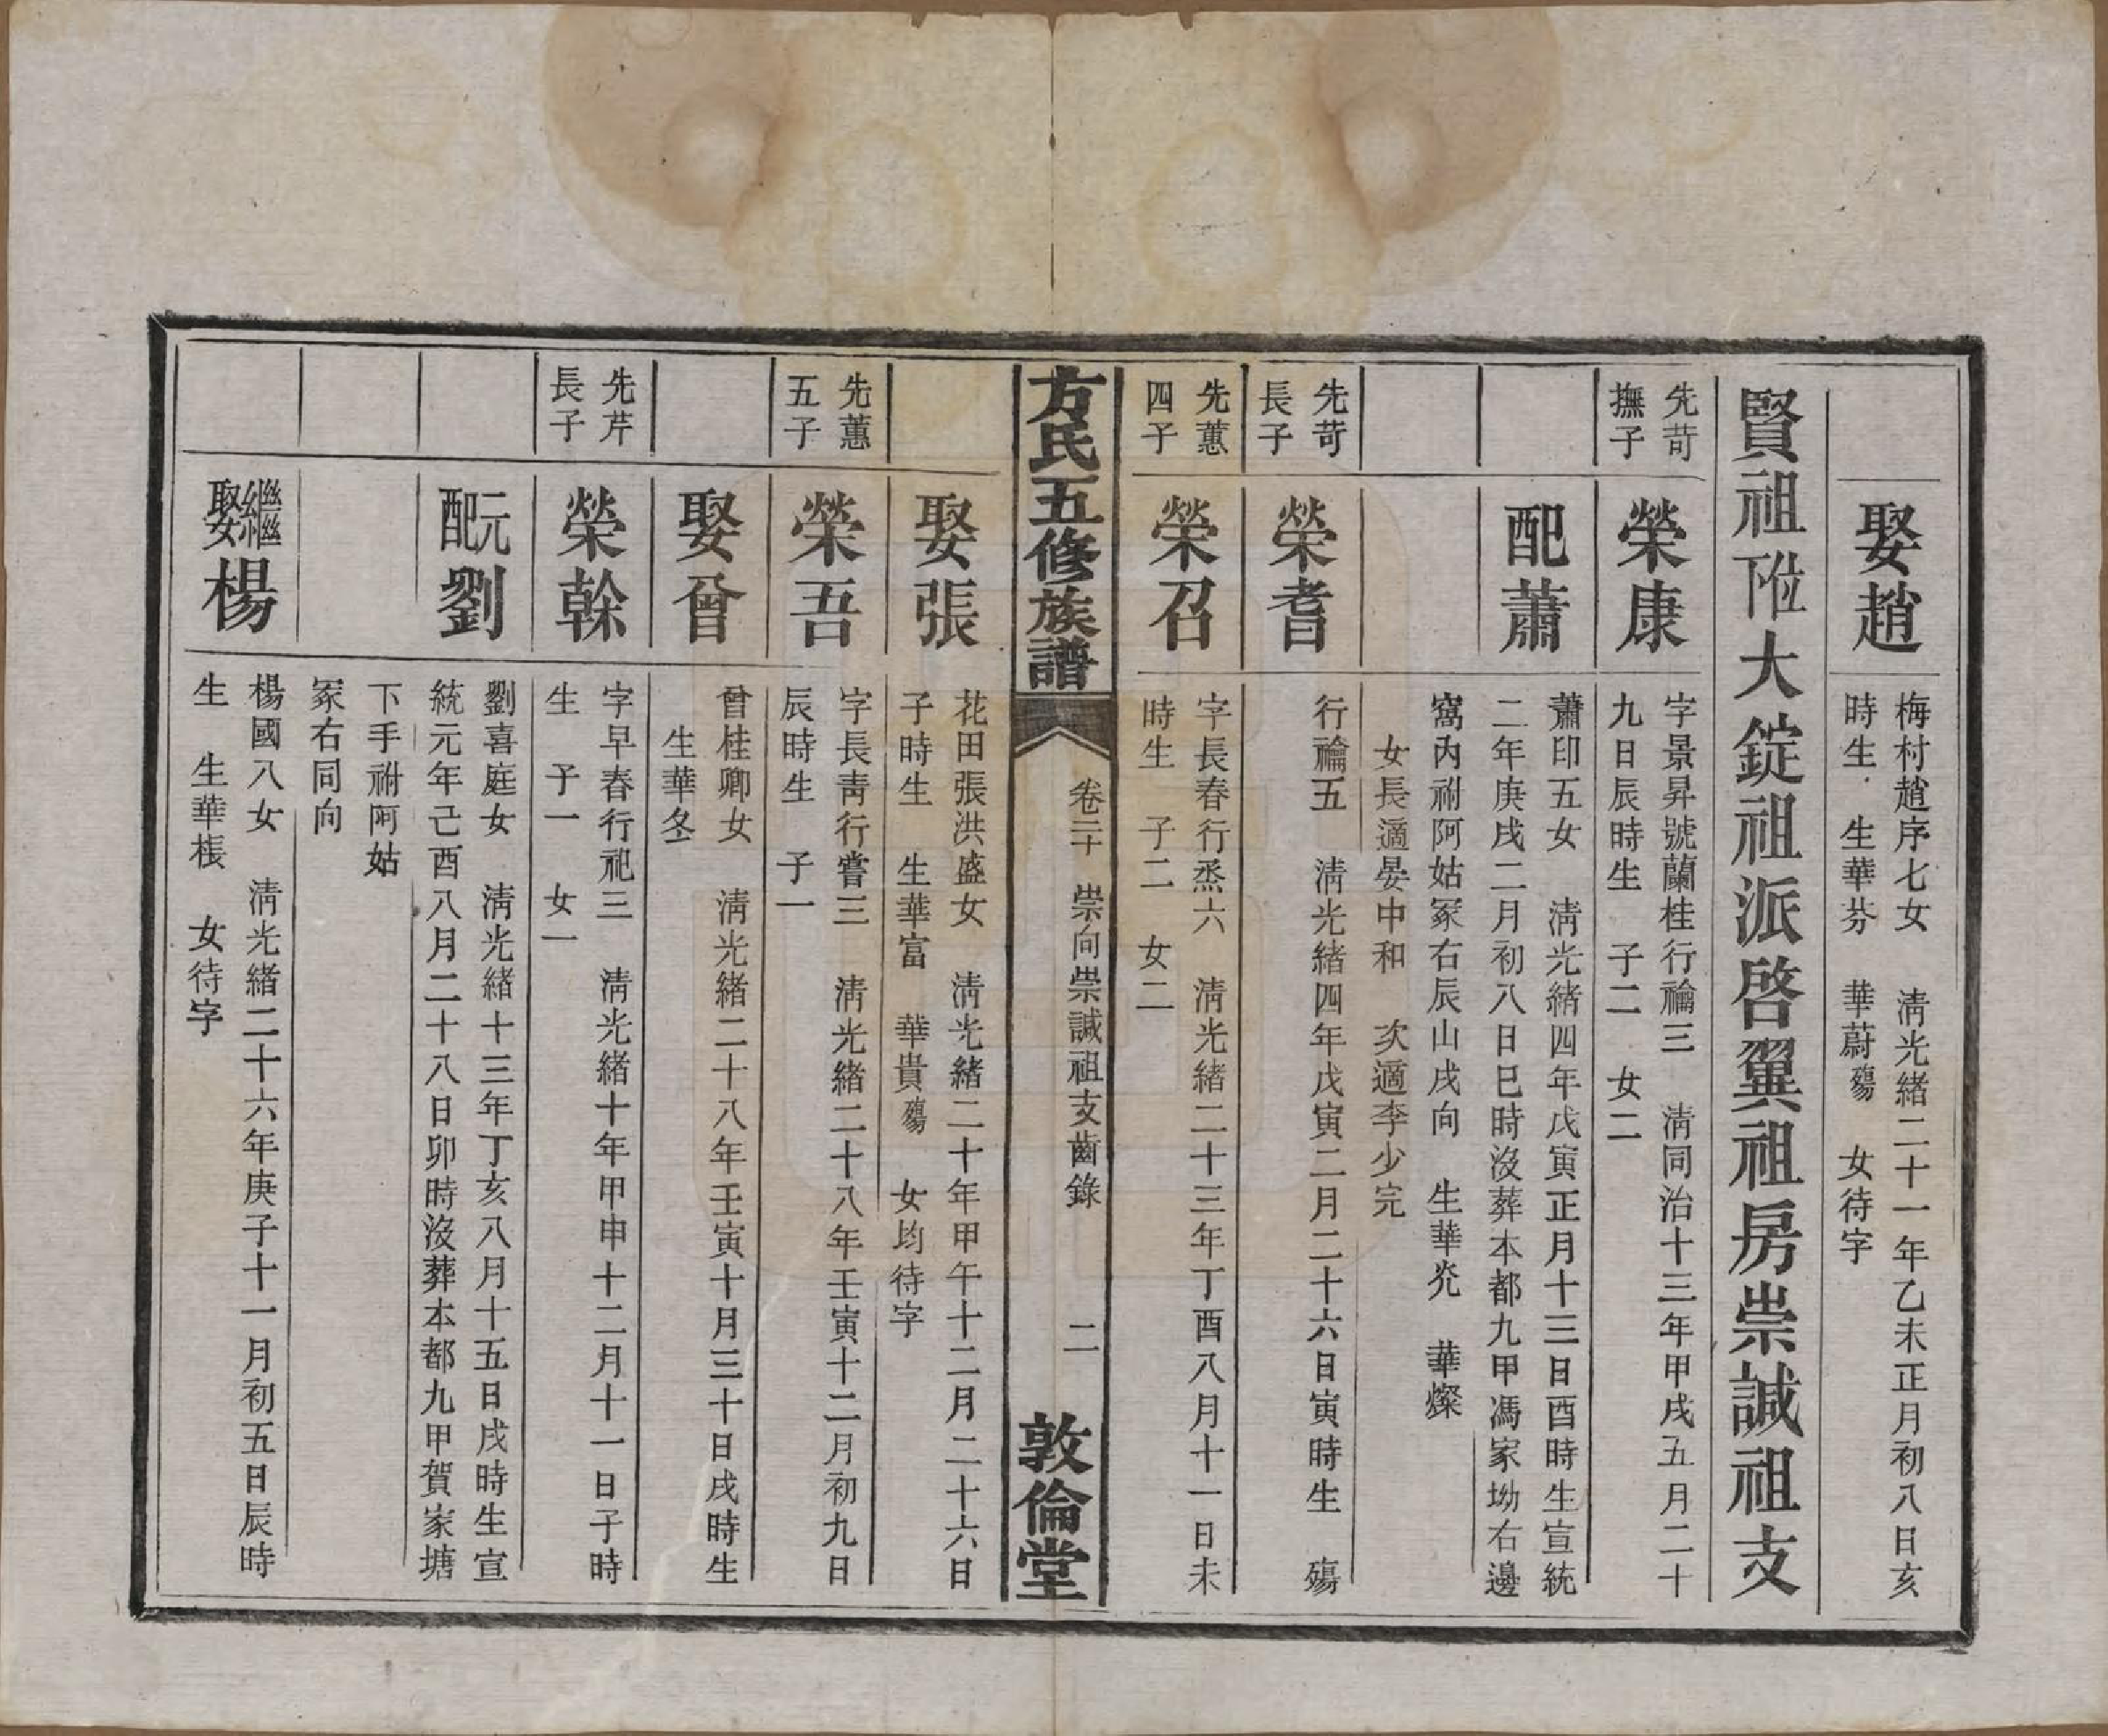 娶趙
梅村趙序七女　清光緒二十一年乙未正月初八日亥
時生　生華芬　華蔚殤　女待字
賢祖位下大錠祖派啓翼祖房崇誠祖支
先苛
撫子
榮康
字景昇號蘭桂行禴三　清同治十三年甲戌五月二十
九日辰時生　子二　女二
配蕭
蕭印五女　清光緒四年戊寅正月十三日酉時生宣統
二年庚戌二月初八日巳時沒葬本都九甲馮家坳右邊
窩內祔阿姑冢右辰山戌向　生華　華燦
女長適晏中和　次適李少完
先苛
長子
榮耆
行禴五　清光緒四年戊寅二月二十六日寅時生　殤
先蕙
四子
榮召
字長春行烝六　清光緒二十三年丁酉八月十一日未
時生　子二　女二
方氏五修族譜
卷二十　崇向崇誠祖支齒錄
二
敦倫堂
娶張
花田張洪盛女　清光緒二十年甲午十二月二十六日
子時生　生華富　華貴殤　女均待字
先蕙
五子
榮吾
字長靑行嘗三　清光緒二十八年壬寅十二月初九日
辰時生　子一
娶曾
曾桂卿女　清光緒二十八年壬寅十月三十日戌時生
生華冬
先芹
長子
榮榦
字早春行祀三　清光緒十年甲申十二月十一日子時
生　子一　女一
元配劉
劉喜庭女　清光緒十三年丁亥八月十五日戌時生宣
統元年己酉八月二十八日卯時沒葬本都九甲賀家塘
下手祔阿姑
冢右同向
繼娶楊
楊國八女　清光緒二十六年庚子十一月初五日辰時
生　生華棖　女待字